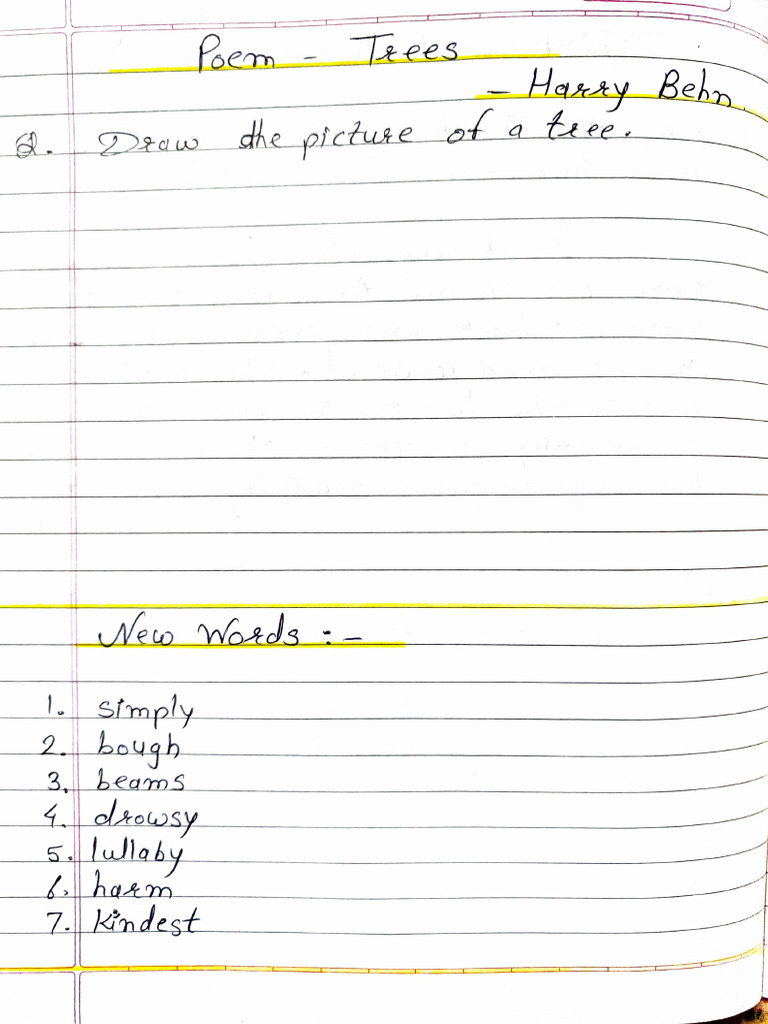 Poem - Trees
- Harry Behn.
Q. Draw the picture of a tree.
New Words :-
1. simply
2. bough
3. beams
4. drowsy
5. lullaby
6. harm
7. kindest